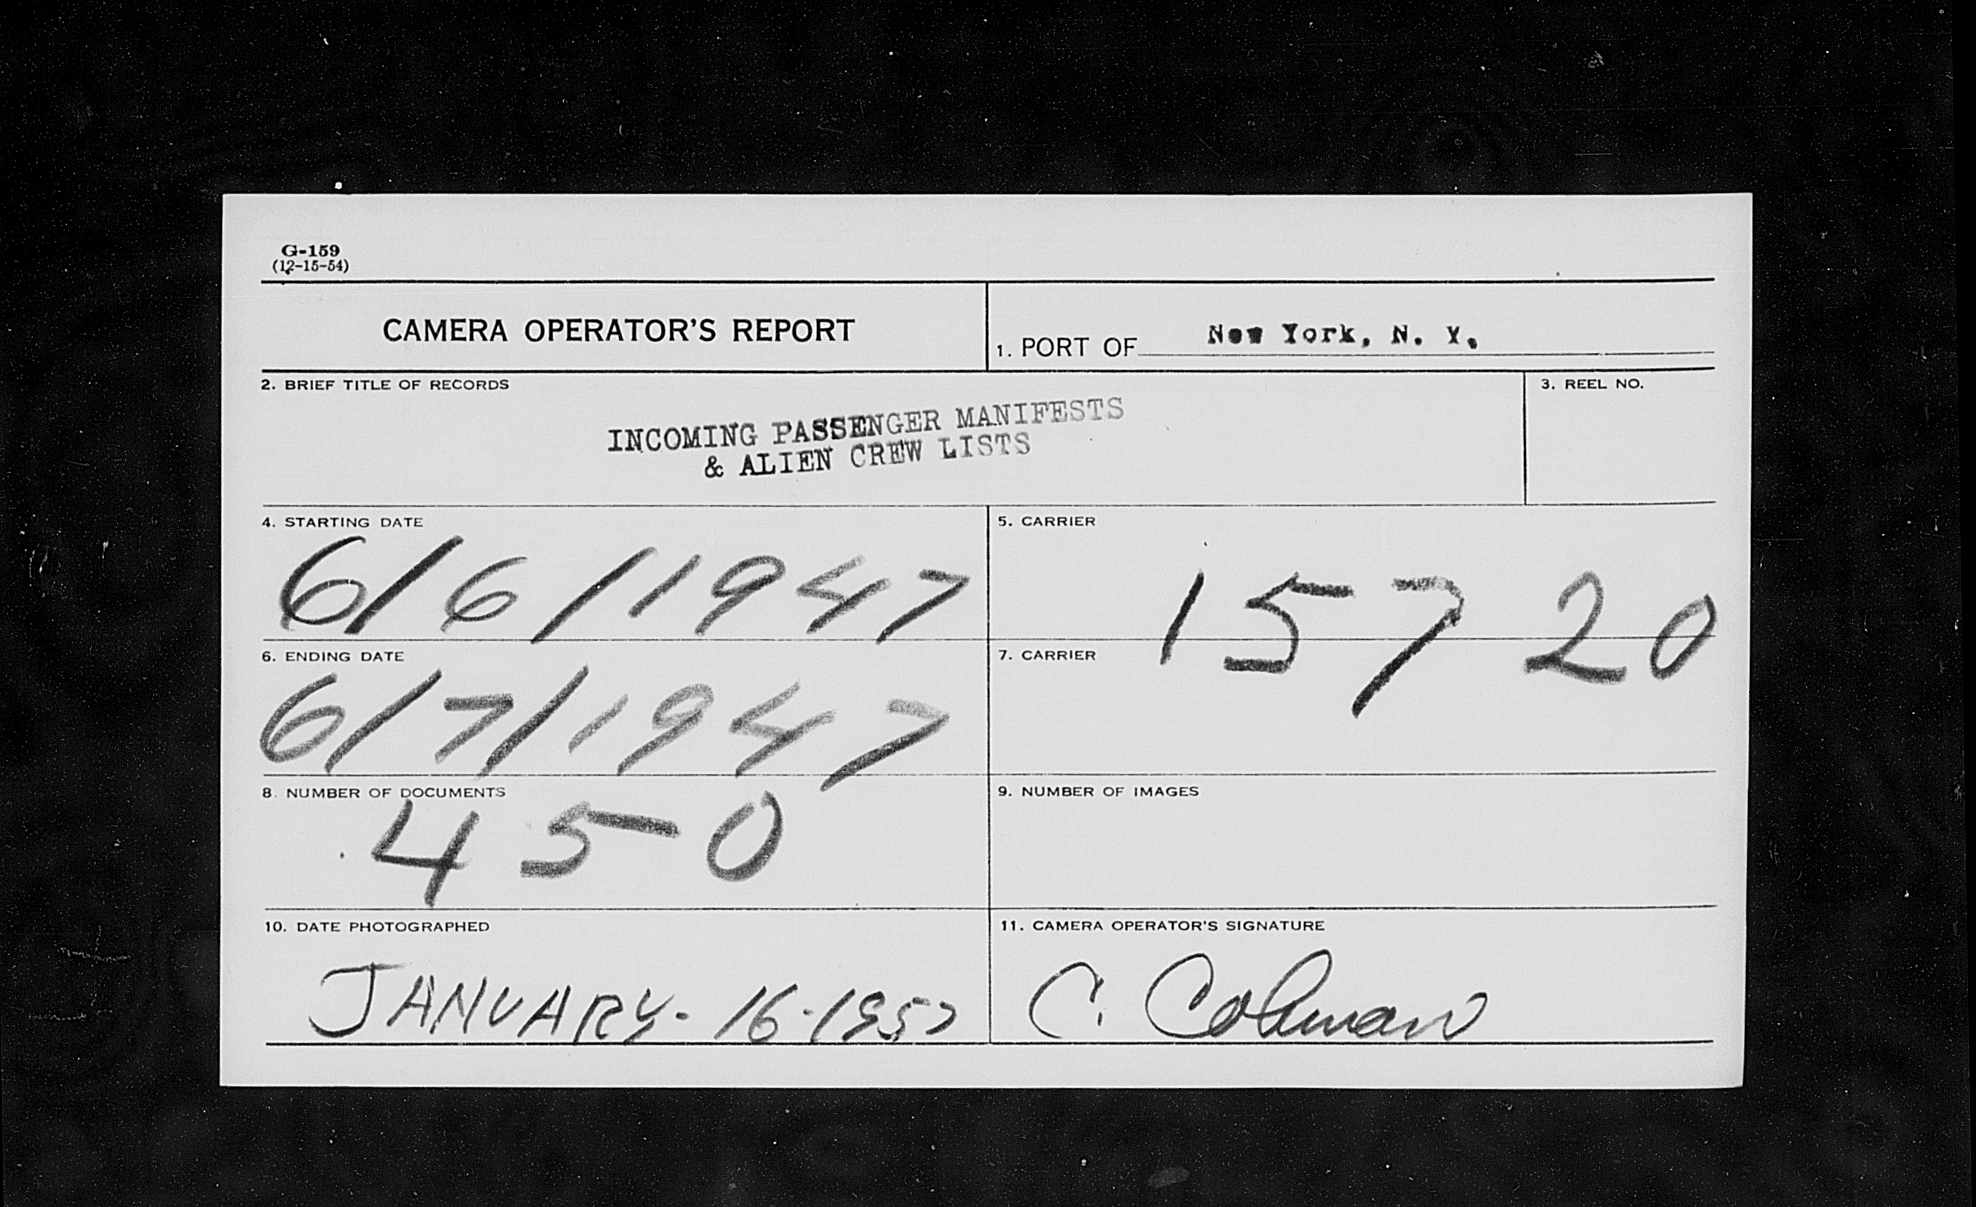 G-159
(12-15-54)
CAMERA OPERATOR'S REPORT
1. PORT OF New York, N. Y.
2. BRIEF TITLE OF RECORDS
INCOMING PASSENGER MANIFESTS
& ALIEN CREW LISTS
3. REEL NO.
4. STARTING DATE
6/6/1947
5. CARRIER
15720
6. ENDING DATE
6/7/1947
7. CARRIER
8. NUMBER OF DOCUMENTS
450
9. NUMBER OF IMAGES
10. DATE PHOTOGRAPHED
JANUARY-16-1957
11. CAMERA OPERATOR'S SIGNATURE
C. Colman